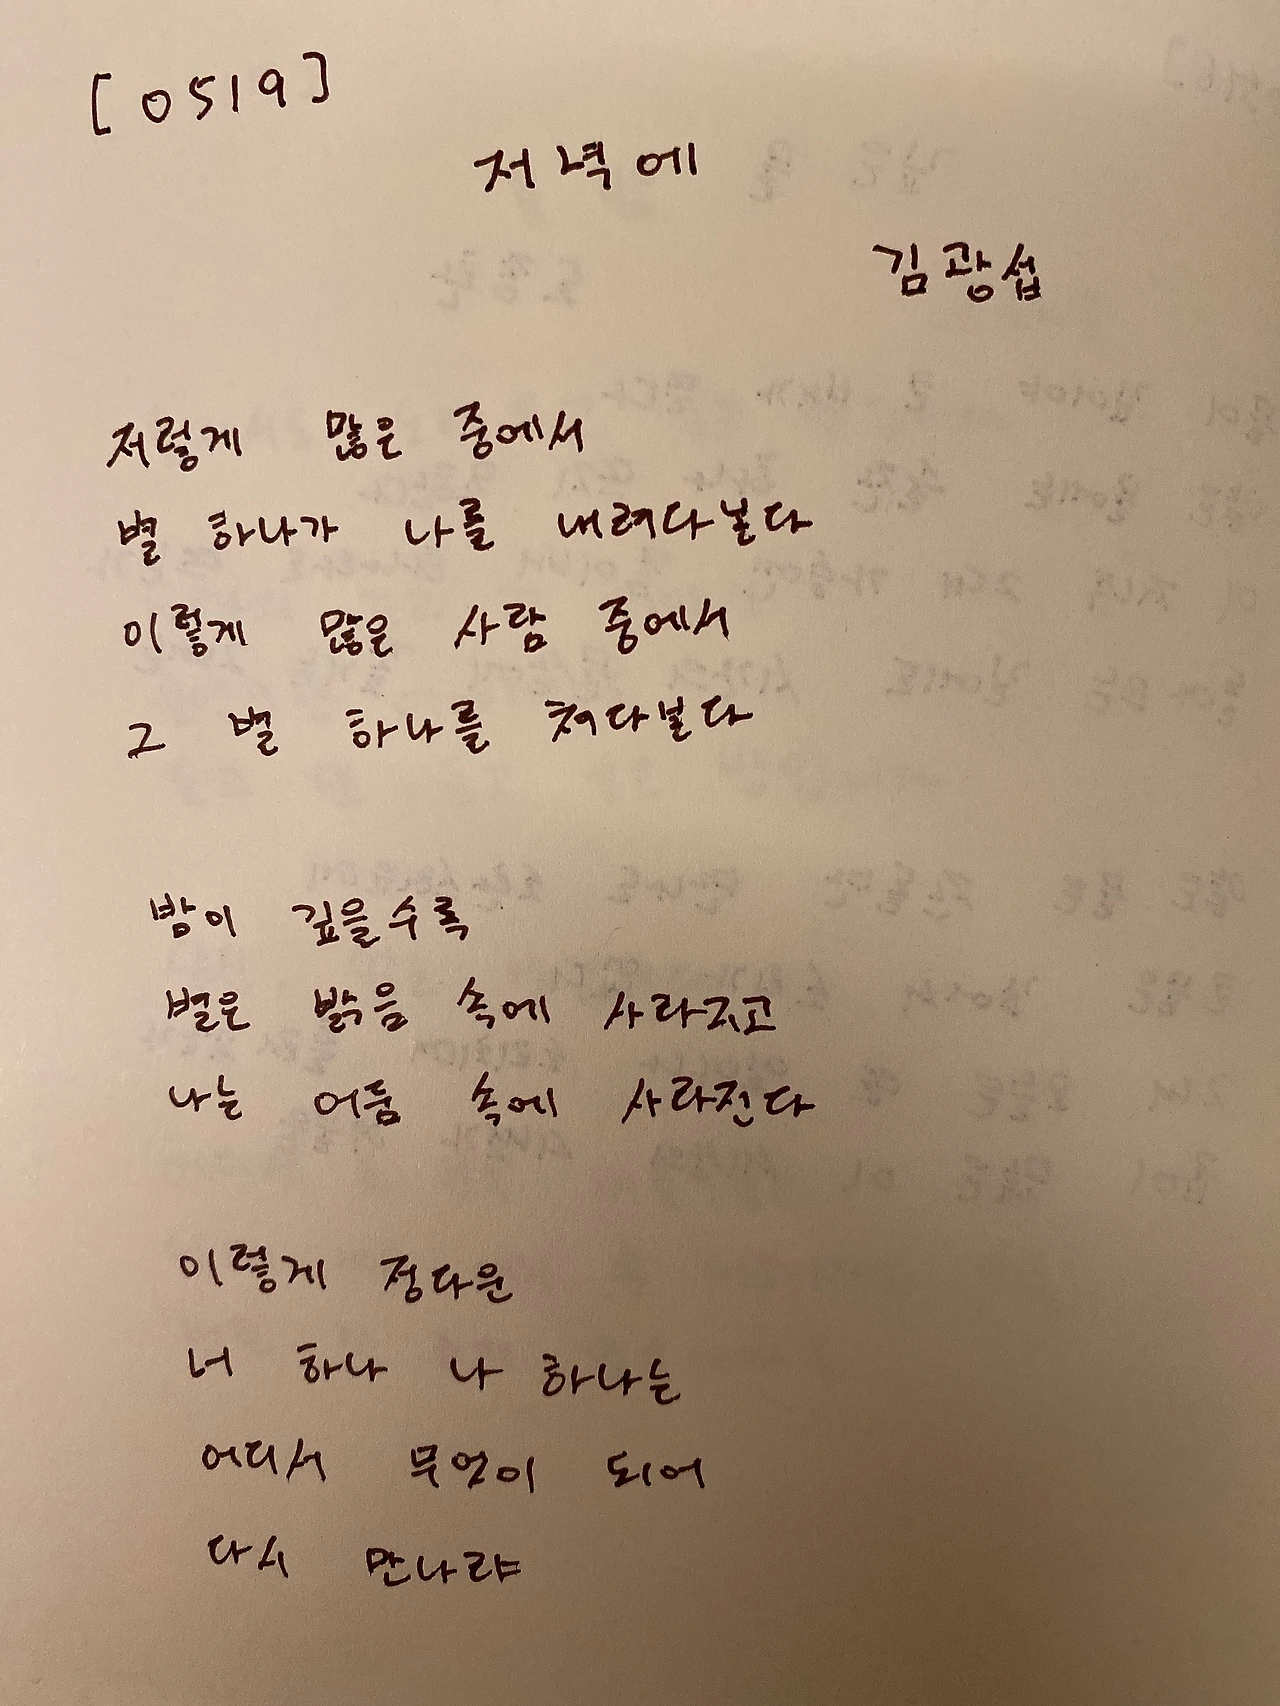 [0519]
저녁에
김광섭
저렇게 많은 중에서
별 하나가 나를 내려다본다
이렇게 많은 사람 중에서
그 별 하나를 쳐다본다
밤이 깊을수록
별은 밝음 속에 사라지고
나는 어둠 속에 사라진다
이렇게 정다운
너 하나 나 하나는
어디서 무엇이 되어
다시 만나랴